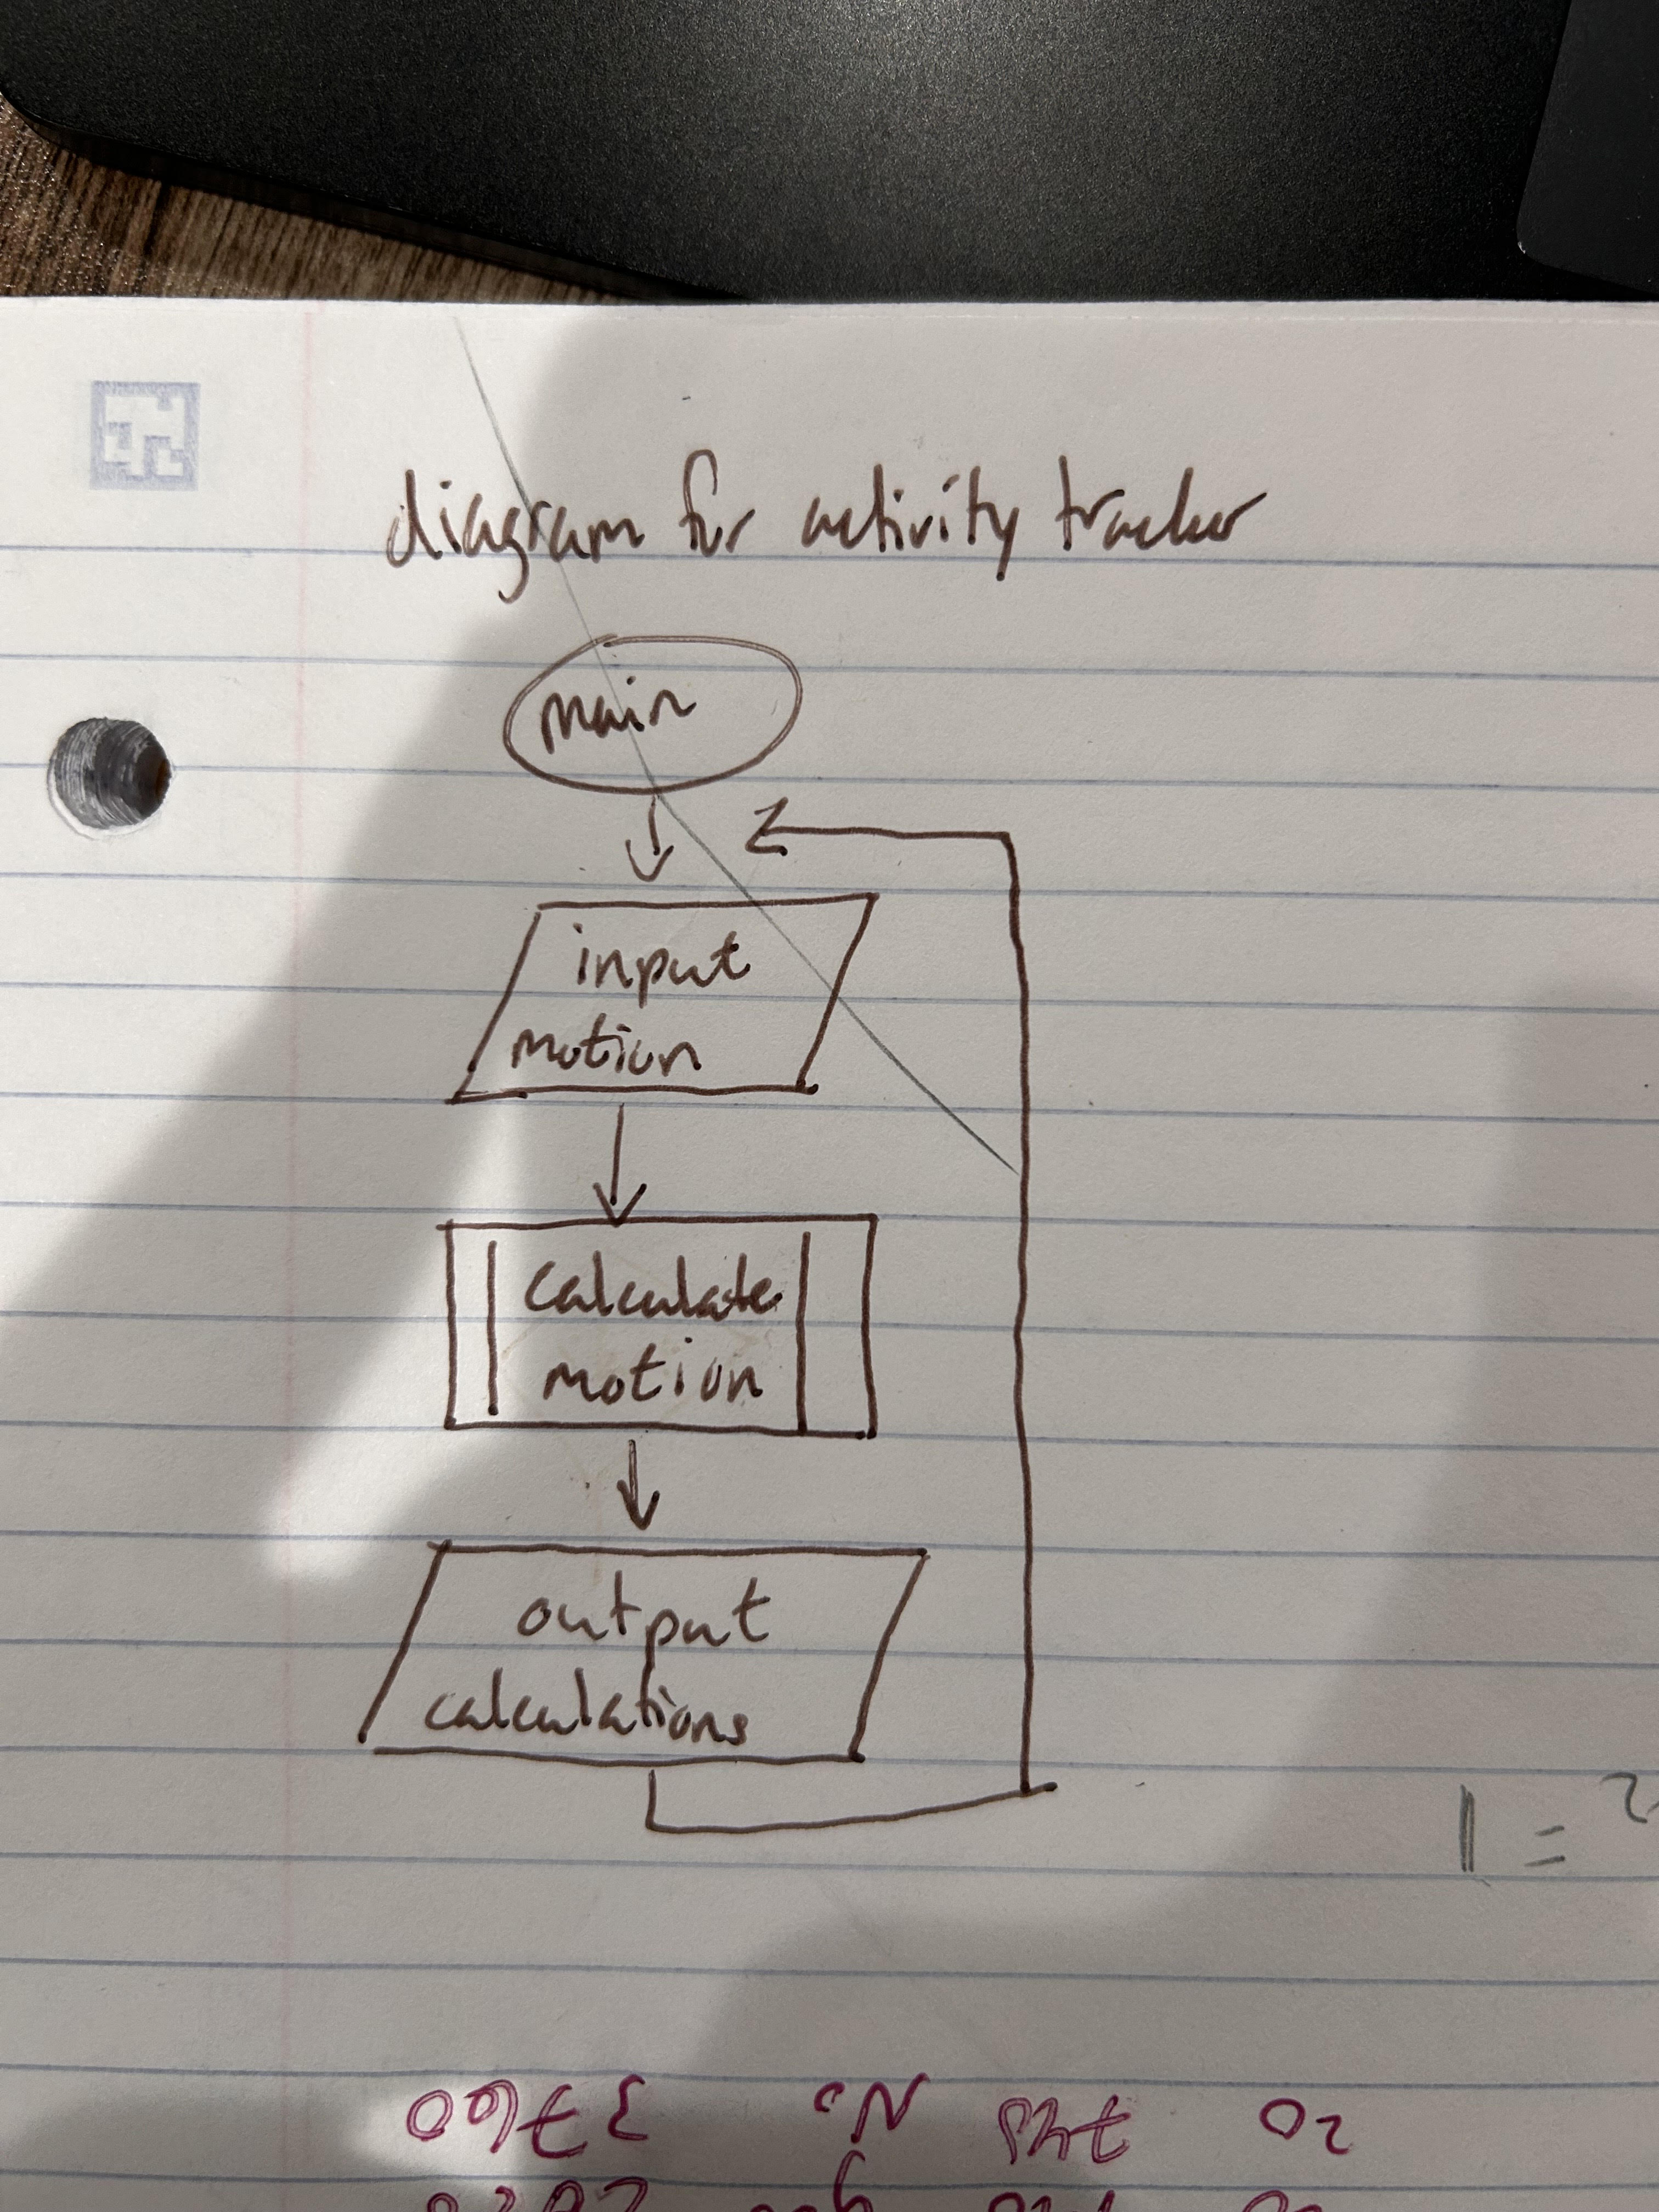 diagram for activity tracker
main
input
motion
calculate
motion
output
calculations
1 = 2
20 740 No 3760